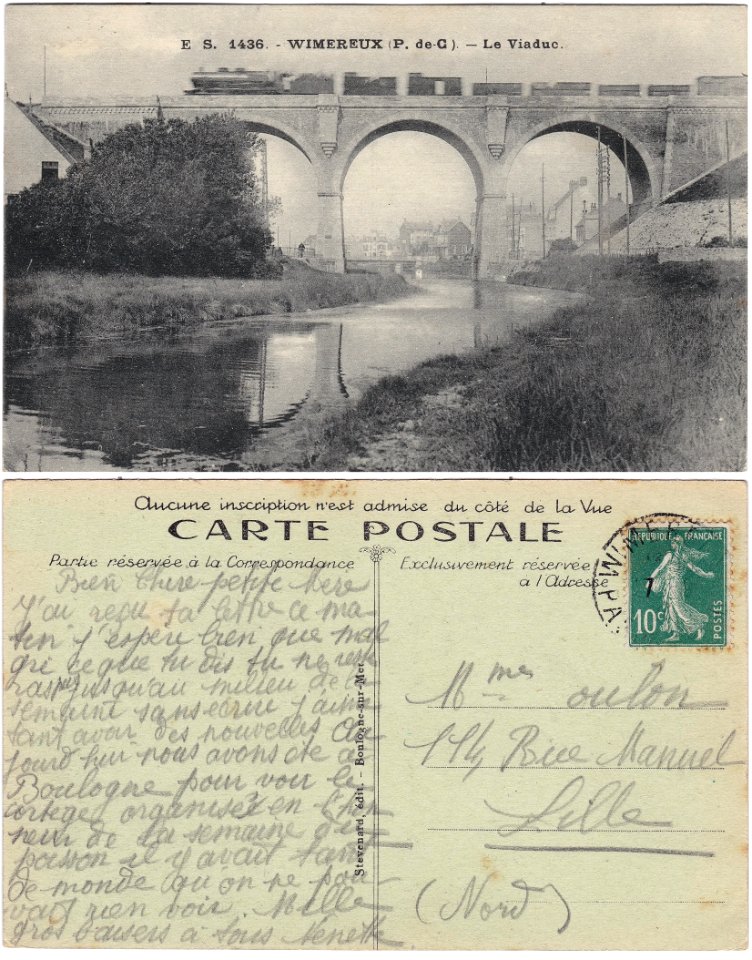 E S. 1436. - WIMEREUX (P. de-C). — Le Viaduc.
Aucune inscription n'est admise du côté de la Vue
CARTE POSTALE
Partie réservée à la Correspondance
Bien chere petite Mere
J'ai reçu ta lettre ce ma-
tin j'espere bien que mal
gri ce que tu dis tu ne reste
ras pas jusqu'au milieu de la
semaine sans ecrire j'aime
tant avoir des nouvelles Au
jourd hui nous avons été à
Boulogne pour voir le
cortege organisé en l'hon
neur de la semaine du
poisson il y avait tant
de monde qu'on ne pou
vait rien voir. Mille
gros baisers à tous
Stevenard, édit. - Boulogne-sur-Mer
Exclusivement réservée
à l'Adresse
RÉPUBLIQUE FRANÇAISE
10c
POSTES
WIME
7
Mmes oulon
114 Rue Manuel
Lille
(Nord)